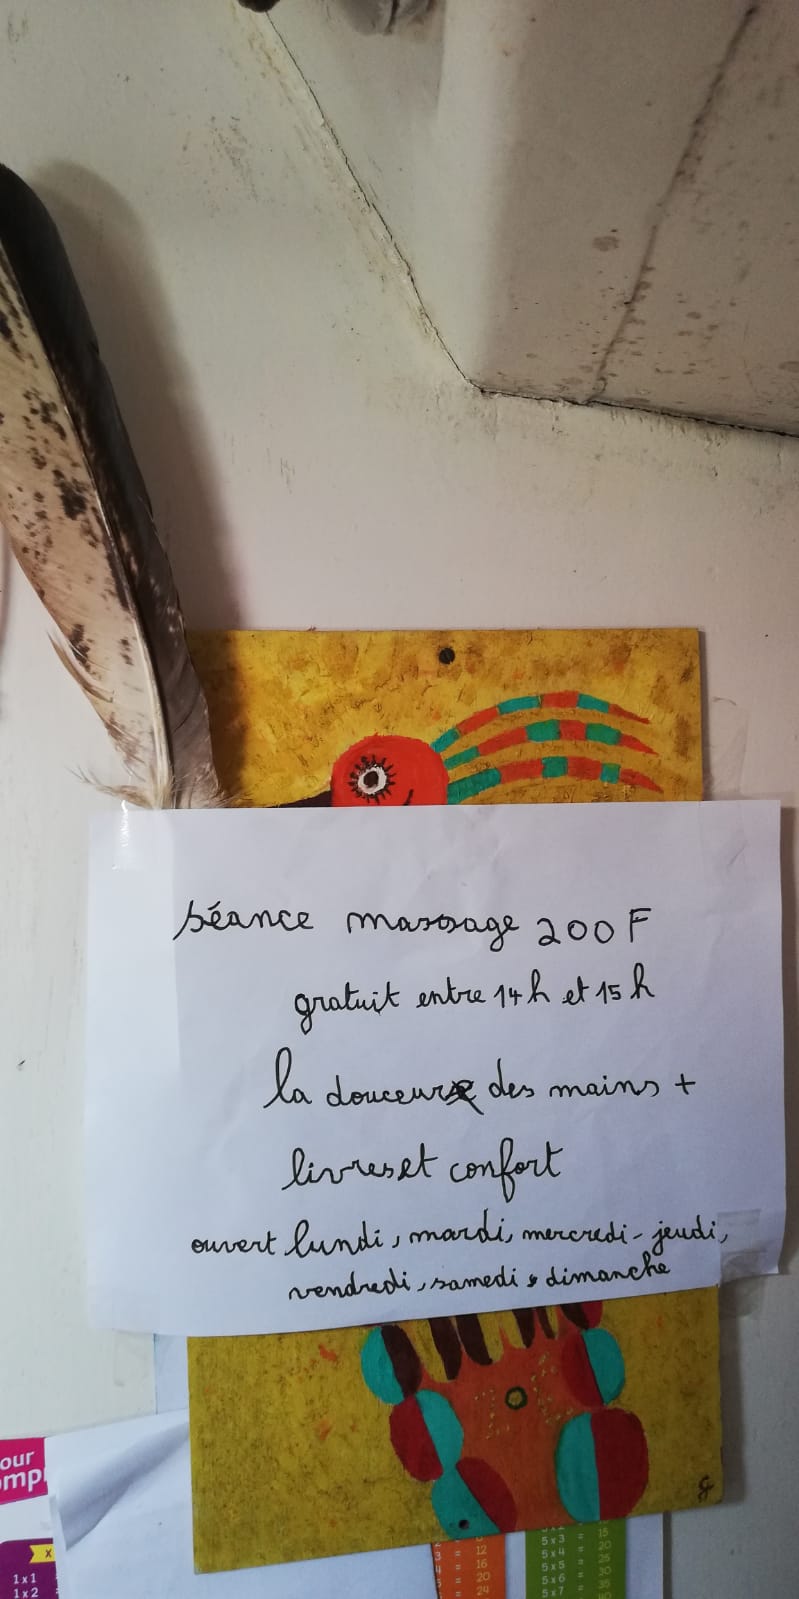 séance massage 200 F
gratuit entre 14 h et 15 h
la douceur des mains +
livres et confort
ouvert lundi, mardi, mercredi - jeudi,
vendredi, samedi, dimanche
our
omp
x
1 x 1
1 x 2
3 = 12
4 = 16
= 20
= 24
5 x 3 = 15
5 x 4 = 20
5 x 5 = 25
5 x 6 = 30
5 x 7 = 35